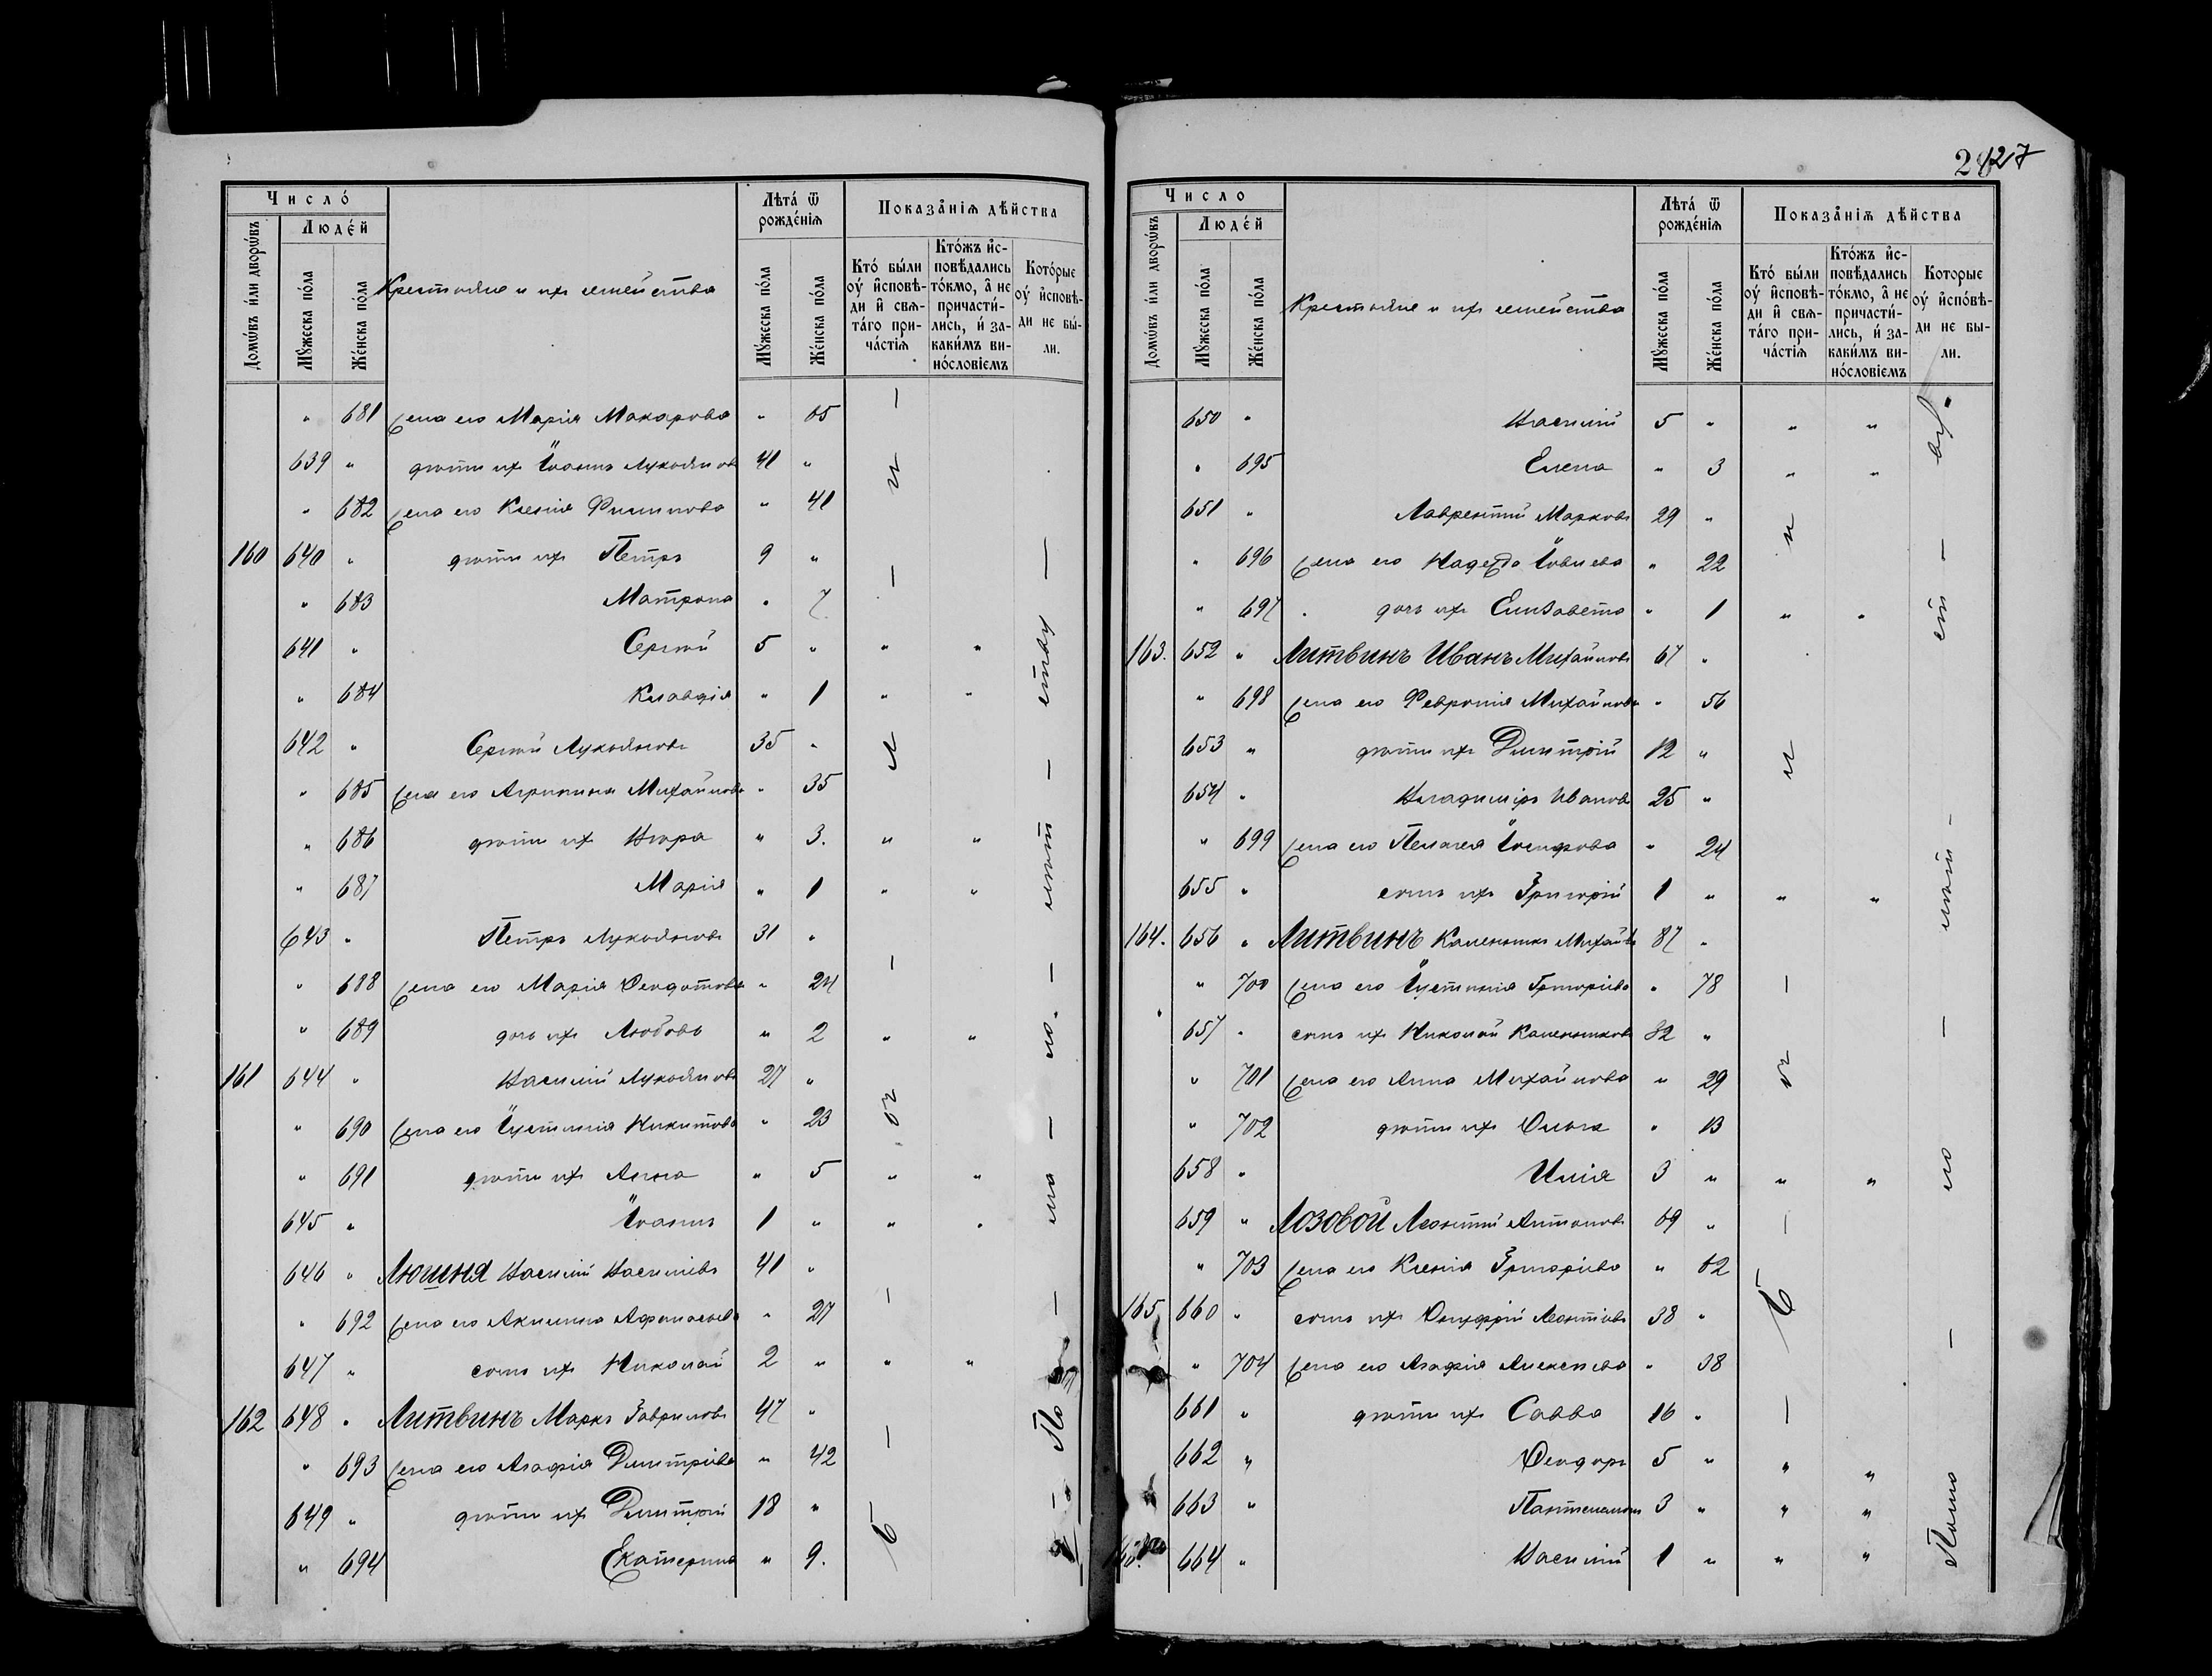 Число́
Домѡ́въ и҆лѝ дворѡ́въ
Людéй
Мꙋ́жеска по́ла
Же́нска по́ла
Крестьяне и ихъ семейства
Лѣта́ ѿ рожде́нїѧ
Мꙋ́жеска по́ла
Же́нска по́ла
Показа̑нїѧ дѣ́йства
Кто́ бы́ли оу҆ и҆сповѣ́ди и҆ свѧта́го прича́стїѧ
Кто́жъ и҆сповѣ́дались то́кмо, а҆ не причасти́лись, и҆ за каки́мъ вино́словїемъ
Кото́рые оу҆ и҆сповѣ́ди не бы́ли.
" 681 жена его Марія Макарова " 65
639 " дѣти ихъ Іоаннъ Лукьяновъ 41 "
" 682 жена его Ксенія Филипова " 41
160 640 " дѣти ихъ Петръ 9 "
" 683 Матрона " 7
641 " Сергій 5 " " "
" 684 Клавдія " 1 " "
642 " Сергій Лукьяновъ 35 "
" 685 жена его Агрипина Михайлова " 35
" 686 дѣти ихъ Вѣра " 3. " "
" 687 Марія " 1 " "
643 " Петръ Лукьяновъ 31 "
" 688 жена его Марія Ѳеодотова " 24
" 689 дочь ихъ Любовь " 2 " "
161 644 " Василій Лукьяновъ 27 "
" 690 жена его Іустинія Никитова " 23
" 691 дѣти ихъ Анна " 5 " "
645 " Іоаннъ 1 " " "
646 " Люшня Василій Василіевъ 41 "
" 692 жена его Акилина Афанасьева " 27
647 " сынъ ихъ Николай 2 " " "
162 648 " Литвинъ Маркъ Гавриловъ 47 "
" 693 жена его Агафія Димитріева " 42
649 " дѣти ихъ Димитрій 18 "
" 694 Екатерина " 9.
127
Число
Домѡ́въ и҆лѝ дворѡ́въ
Людéй
Мꙋ́жеска по́ла
Же́нска по́ла
Крестьяне и ихъ семейства
Лѣта́ ѿ рожде́нїѧ
Мꙋ́жеска по́ла
Же́нска по́ла
Показа̑нїѧ дѣ́йства
Кто́ бы́ли оу҆ и҆сповѣ́ди и҆ свѧта́го прича́стїѧ
Кто́жъ и҆сповѣ́дались то́кмо, а҆ не причасти́лись, и҆ за каки́мъ вино́словїемъ
Которые оу҆ и҆спо́вѣди не бы́ли.
650 " Василій 5 " " "
" 695 Елена " 3 " "
651 " Лаврентій Марковъ 29 "
" 696 жена его Надежда Іовлева " 22
" 697 дочь ихъ Елизавета " 1 " "
163. 652 " Литвинъ Иванъ Михайловъ 67 "
" 698 жена его Февронія Михайлова " 56
653 " дѣти ихъ Димитрій 12 "
654 " Владиміръ Ивановъ 25 "
" 699 жена его Пелагея Іосифова " 24
655 " сынъ ихъ Григорій 1 " " "
164. 656 " Литвинъ Каленикъ Михайловъ 87 "
" 700 жена его Іустинія Григоріева " 78
657 " сынъ ихъ Николай Калениковъ 32 "
" 701 жена его Анна Михайлова " 29
" 702 дѣти ихъ Ольга " 13
658 " Илія 3 " " "
659 " Лозовой Леонтій Антоновъ 69 "
" 703 жена его Ксенія Григоріева " 62
165 660 " сынъ ихъ Онуфрій Леонтіевъ 38 "
" 704 жена его Агафія Алексѣева " 38
661 " дѣти ихъ Савва 16 "
662 " Ѳеодоръ 5 " " "
663 " Пантелеимонъ 3 " " "
664 " Василій 1 " " "